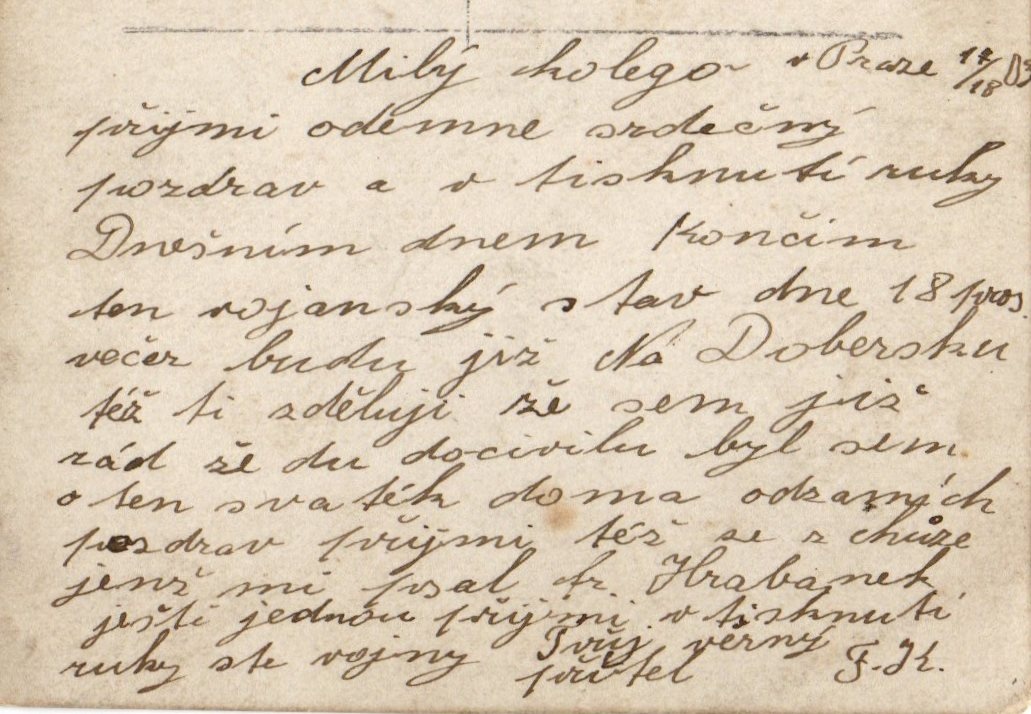 Milý kolego v Praze 17/18
přijmi odemne srdečný
pozdrav a v tisknutí ruky
Dnešním dnem Končím
ten vojanský stav dne 18 pros.
večer budu již Na Dobersku
též ti zděluji že sem již
rád že du docivilu byl sem
o ten svaték doma odzamích
pozdrav přijmi též se z chůze
jenž mi psal fr. Hrabanek
ješti jednou přijmi v tisknutí
ruky ste vojny Tvůj věrný
přítel F. K.